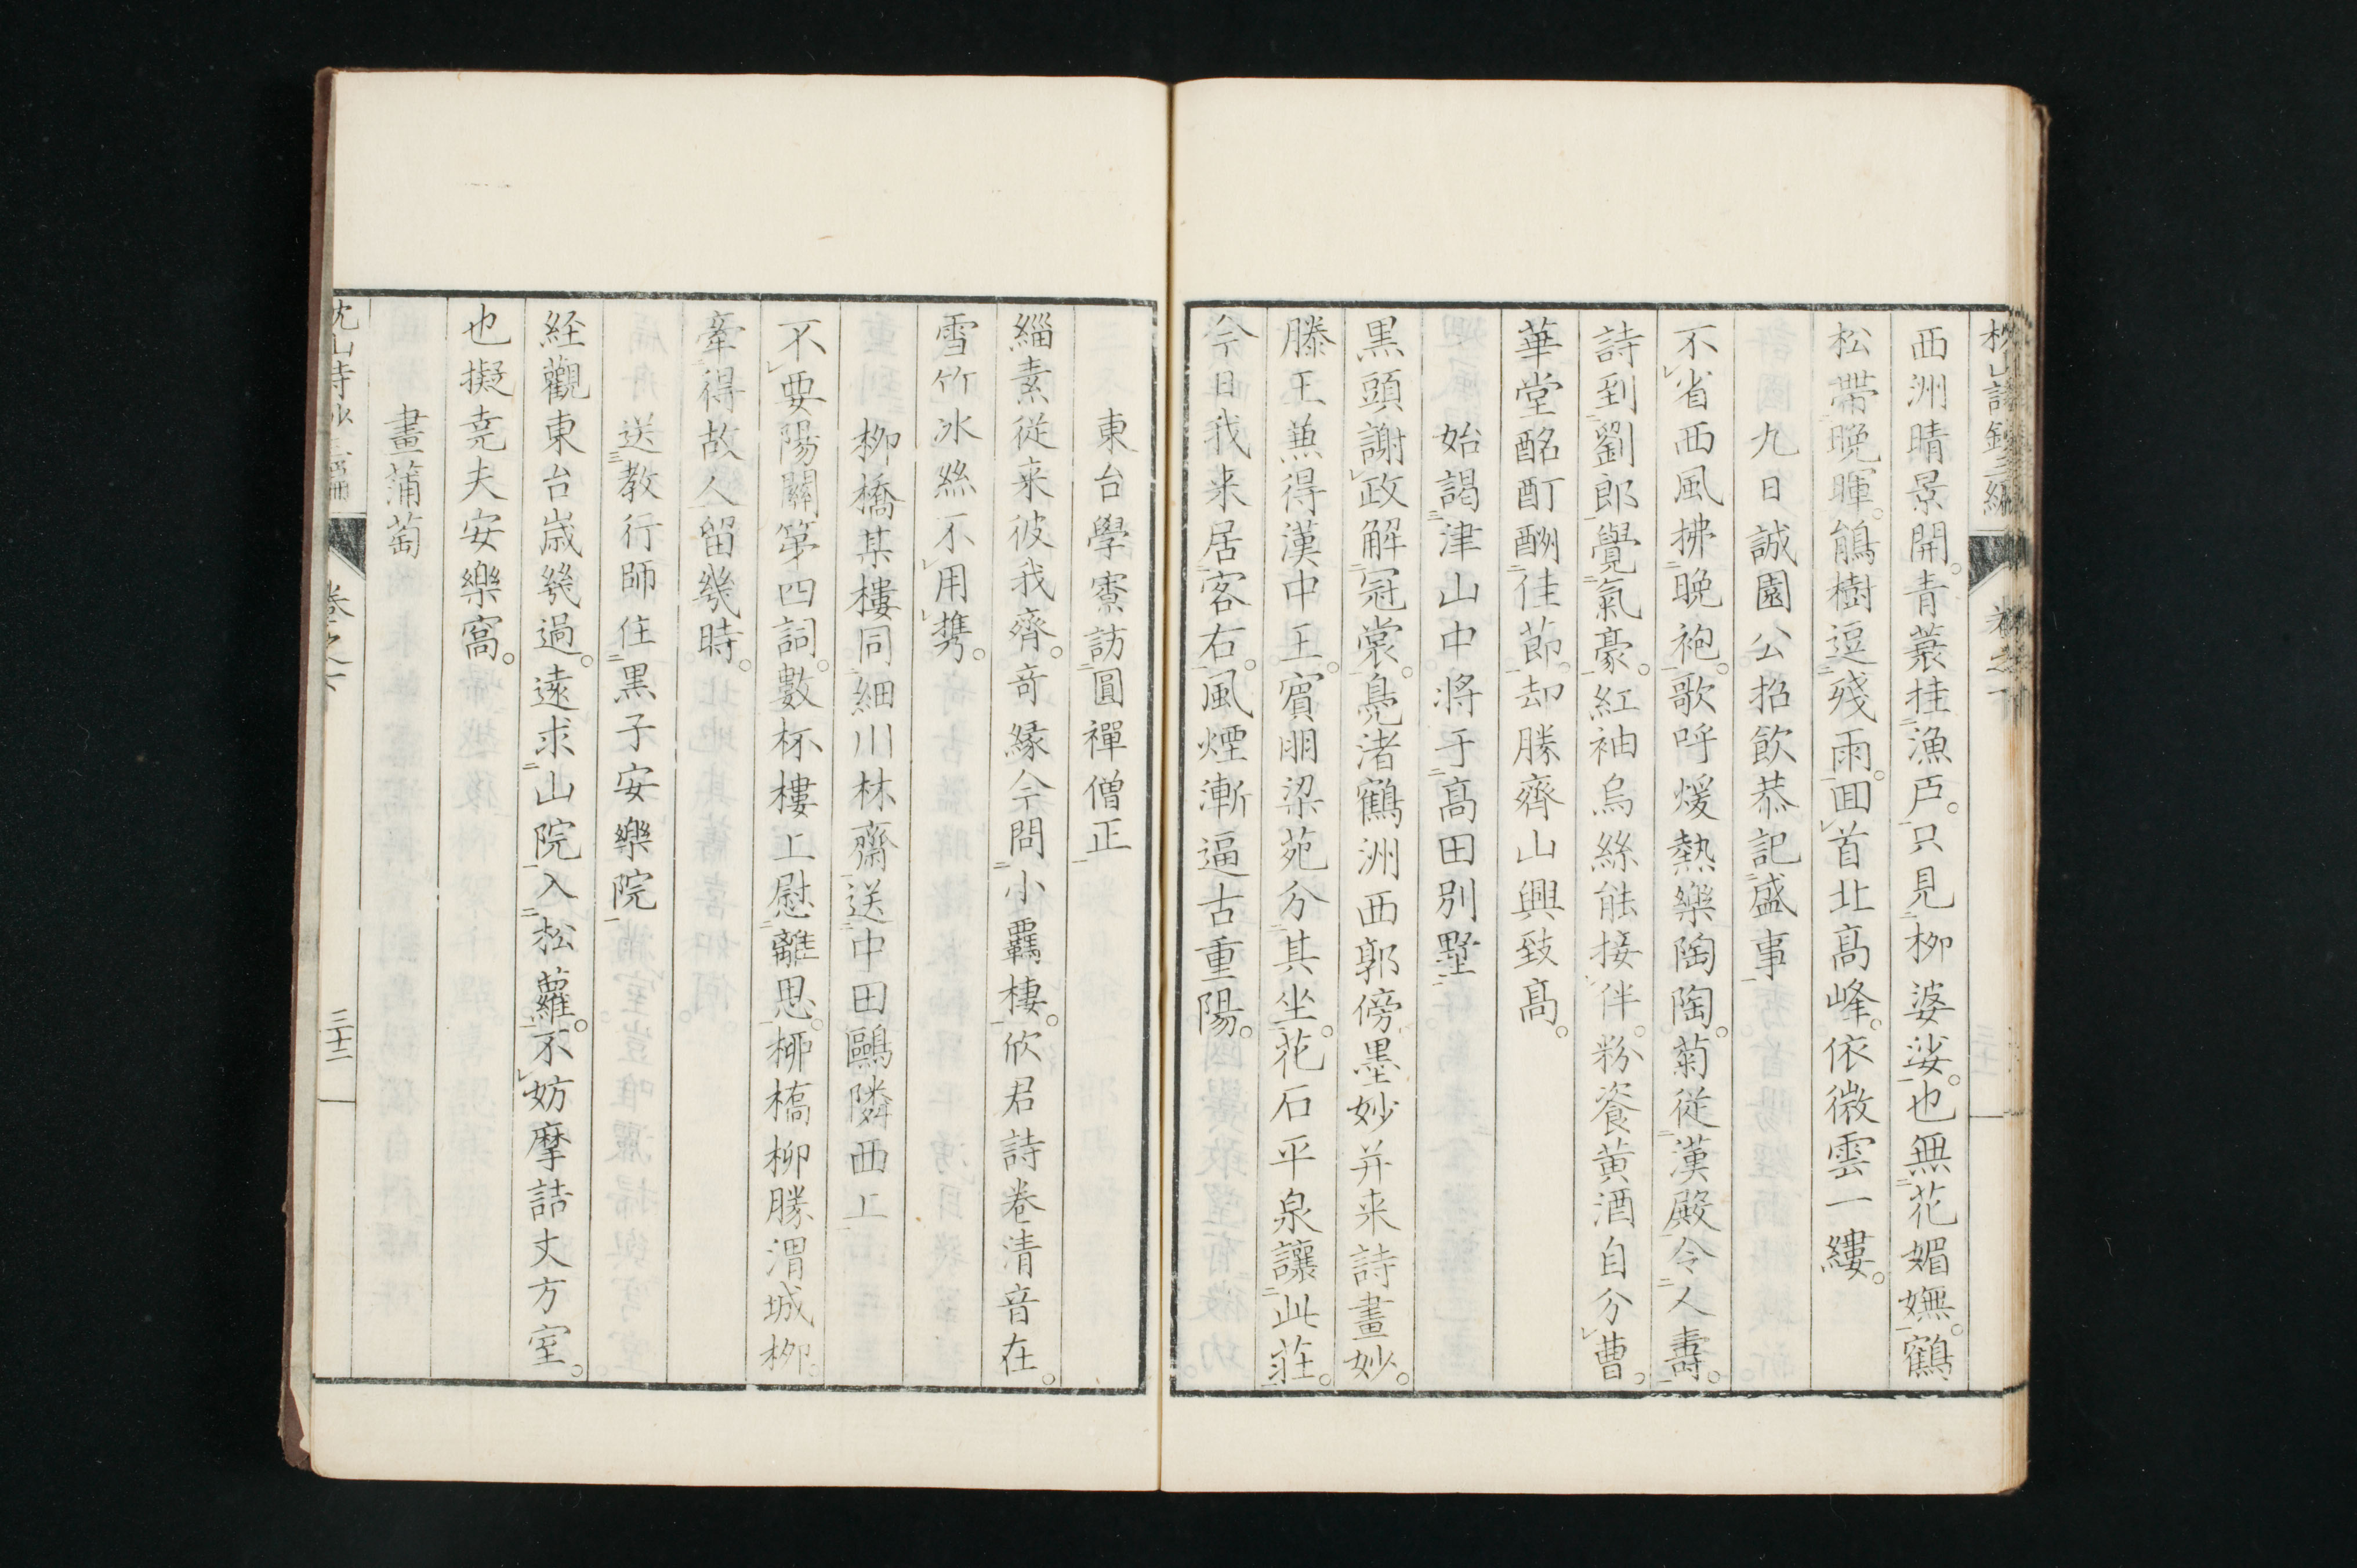 枕山詩鈔三編
卷之下
西洲晴景開。青蓑挂漁戶。只見柳婆娑。也無花媚嫵。鶴
松帶晚暉。鵑樹逗殘雨。囬首北高峰。依微雲一縷。
九日誠園公招飲恭記盛事
不省西風拂晚袍。歌呼煖熱樂陶陶。菊從漢殿令人壽。
詩到劉郎覺氣豪。紅袖烏絲能接伴。粉瓷黃酒自分曹。
華堂酩酊酬佳節。却勝齊山興致高。
始謁津山中將于高田別墅
黒頭謝政解冠裳。鳧渚鶴洲西郭傍。墨妙并来詩畫妙。
滕王兼得漢中王。賓朋梁苑分其坐。花石平泉讓此莊。
今日我来居客右。風煙漸逼古重陽。
東台學寮訪圓禪僧正
緇素從来彼我齊。奇緣今問小羈棲。欣君詩卷清音在。
雪竹冰絲不用携。
柳橋某樓同細川林齋送中田鷗隣西上
不要陽關第四詞。數杯樓上慰離思。柳橋柳勝渭城柳。
牽得故人留幾時。
送教行師住黒子安樂院
経觀東台歳幾過。遠求山院入松蘿。不妨摩詰丈方室。
也擬尭夫安樂窩。
畫蒲萄
枕山詩鈔三編
卷之下
三十二